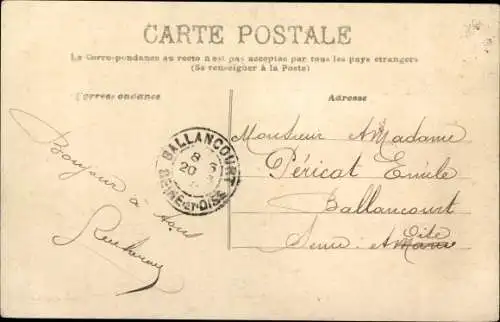 CARTE POSTALE
La Correspondance au recto n'est pas acceptée par tous les pays étrangers
(Se renseigner à la Poste)
Correspondance
Adresse
Bonjour à tous
BALLANCOURT
8
20
SEINE-ET-OISE
Monsieur et Madame
Péricat Emile
Ballancourt
Seine et Marne
Oise